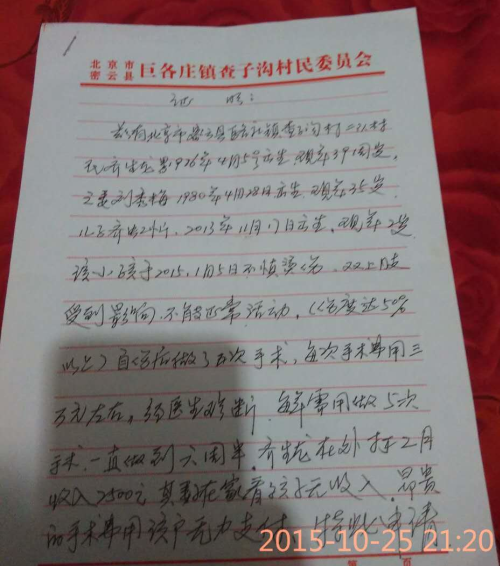 北京市
密云县 巨各庄镇查子沟村民委员会
证 明：
兹有北京市密云县巨各庄镇查子沟村二队村
民齐生龙男1976年4月5号产生，现年39周岁，
之妻刘秀梅1980年4月28日产生，现年35岁
儿子齐 2013年11月17日产生，现年2岁
该小孩于2015.1月5日不慎烫伤，双上肢
受到影响，不能正常活动，（ 度达50%
以上）自伤后做了 次手术，每次手术费用三
万元左右，经医生诊断，每年需用做5次
手术，一直做到六周半，齐生龙在外打工月
收入2500元 其妻在家看孩子无收入，昂贵
的手术费用该户无力支付，特此申请
2015-10-25 21:20